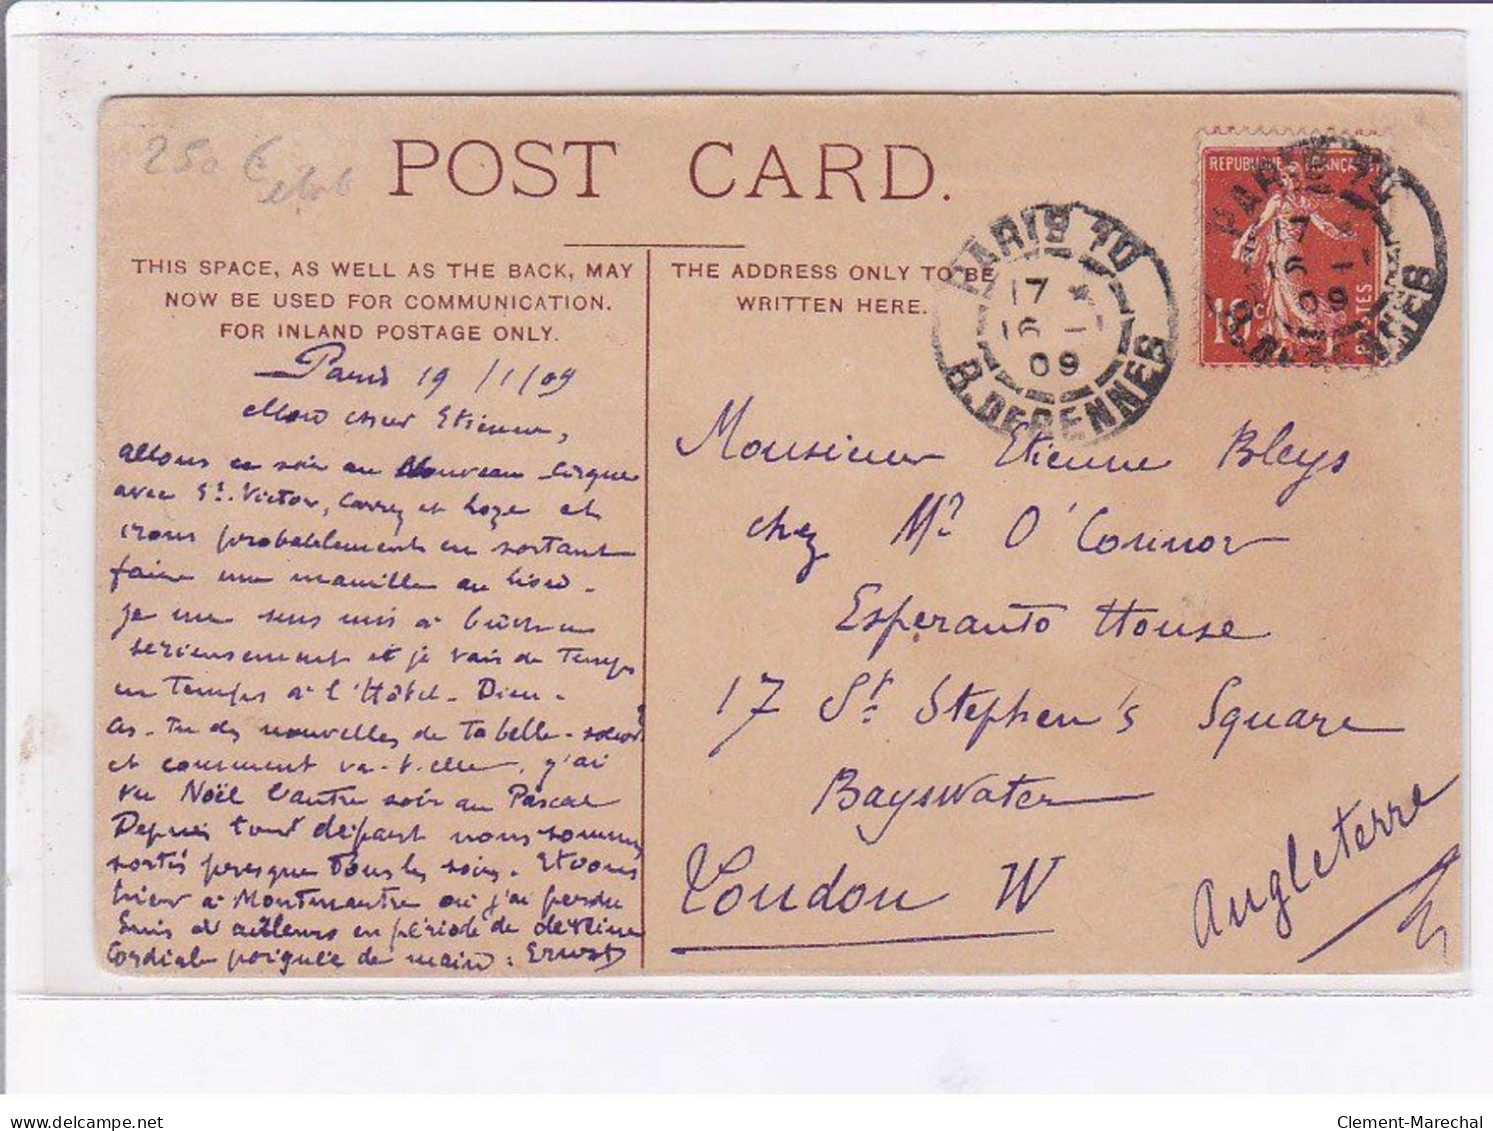 POST CARD.
THIS SPACE, AS WELL AS THE BACK, MAY
NOW BE USED FOR COMMUNICATION.
FOR INLAND POSTAGE ONLY.
THE ADDRESS ONLY TO BE
WRITTEN HERE.
Paris 19/1/09
Mon cher Etienne,
allons ce soir au Nouveau Cirque
avec St. Victor, Carrez et et
irons probablement en sortant
faire une manille au
Je me suis mis à bûcher
sérieusement et je vais de temps
en temps à l'Hôtel-Dieu.
As-tu des nouvelles de ta belle-soeur
et comment va-t-elle, j'ai
vu Noël l'autre soir au Pascal
Depuis ton départ nous sommes
sortis presque tous les soirs. Etions
hier à Montmartre où j'ai perdu
Suis d'ailleurs en période de déveine
Cordiale poignée de main. Ernest
Monsieur Etienne Bleys
chez Mr O'Connor
Esperanto House
17 St Stephen's Square
Bayswater
London W
Angleterre
REPUBLIQUE FRANÇAISE
10 c
POSTES
PARIS 70
17
16 - 1
09
R. DEPENNES
PARIS 70
17
16 - 1
09
250 €
www.delcampe.net
Clement-Marechal